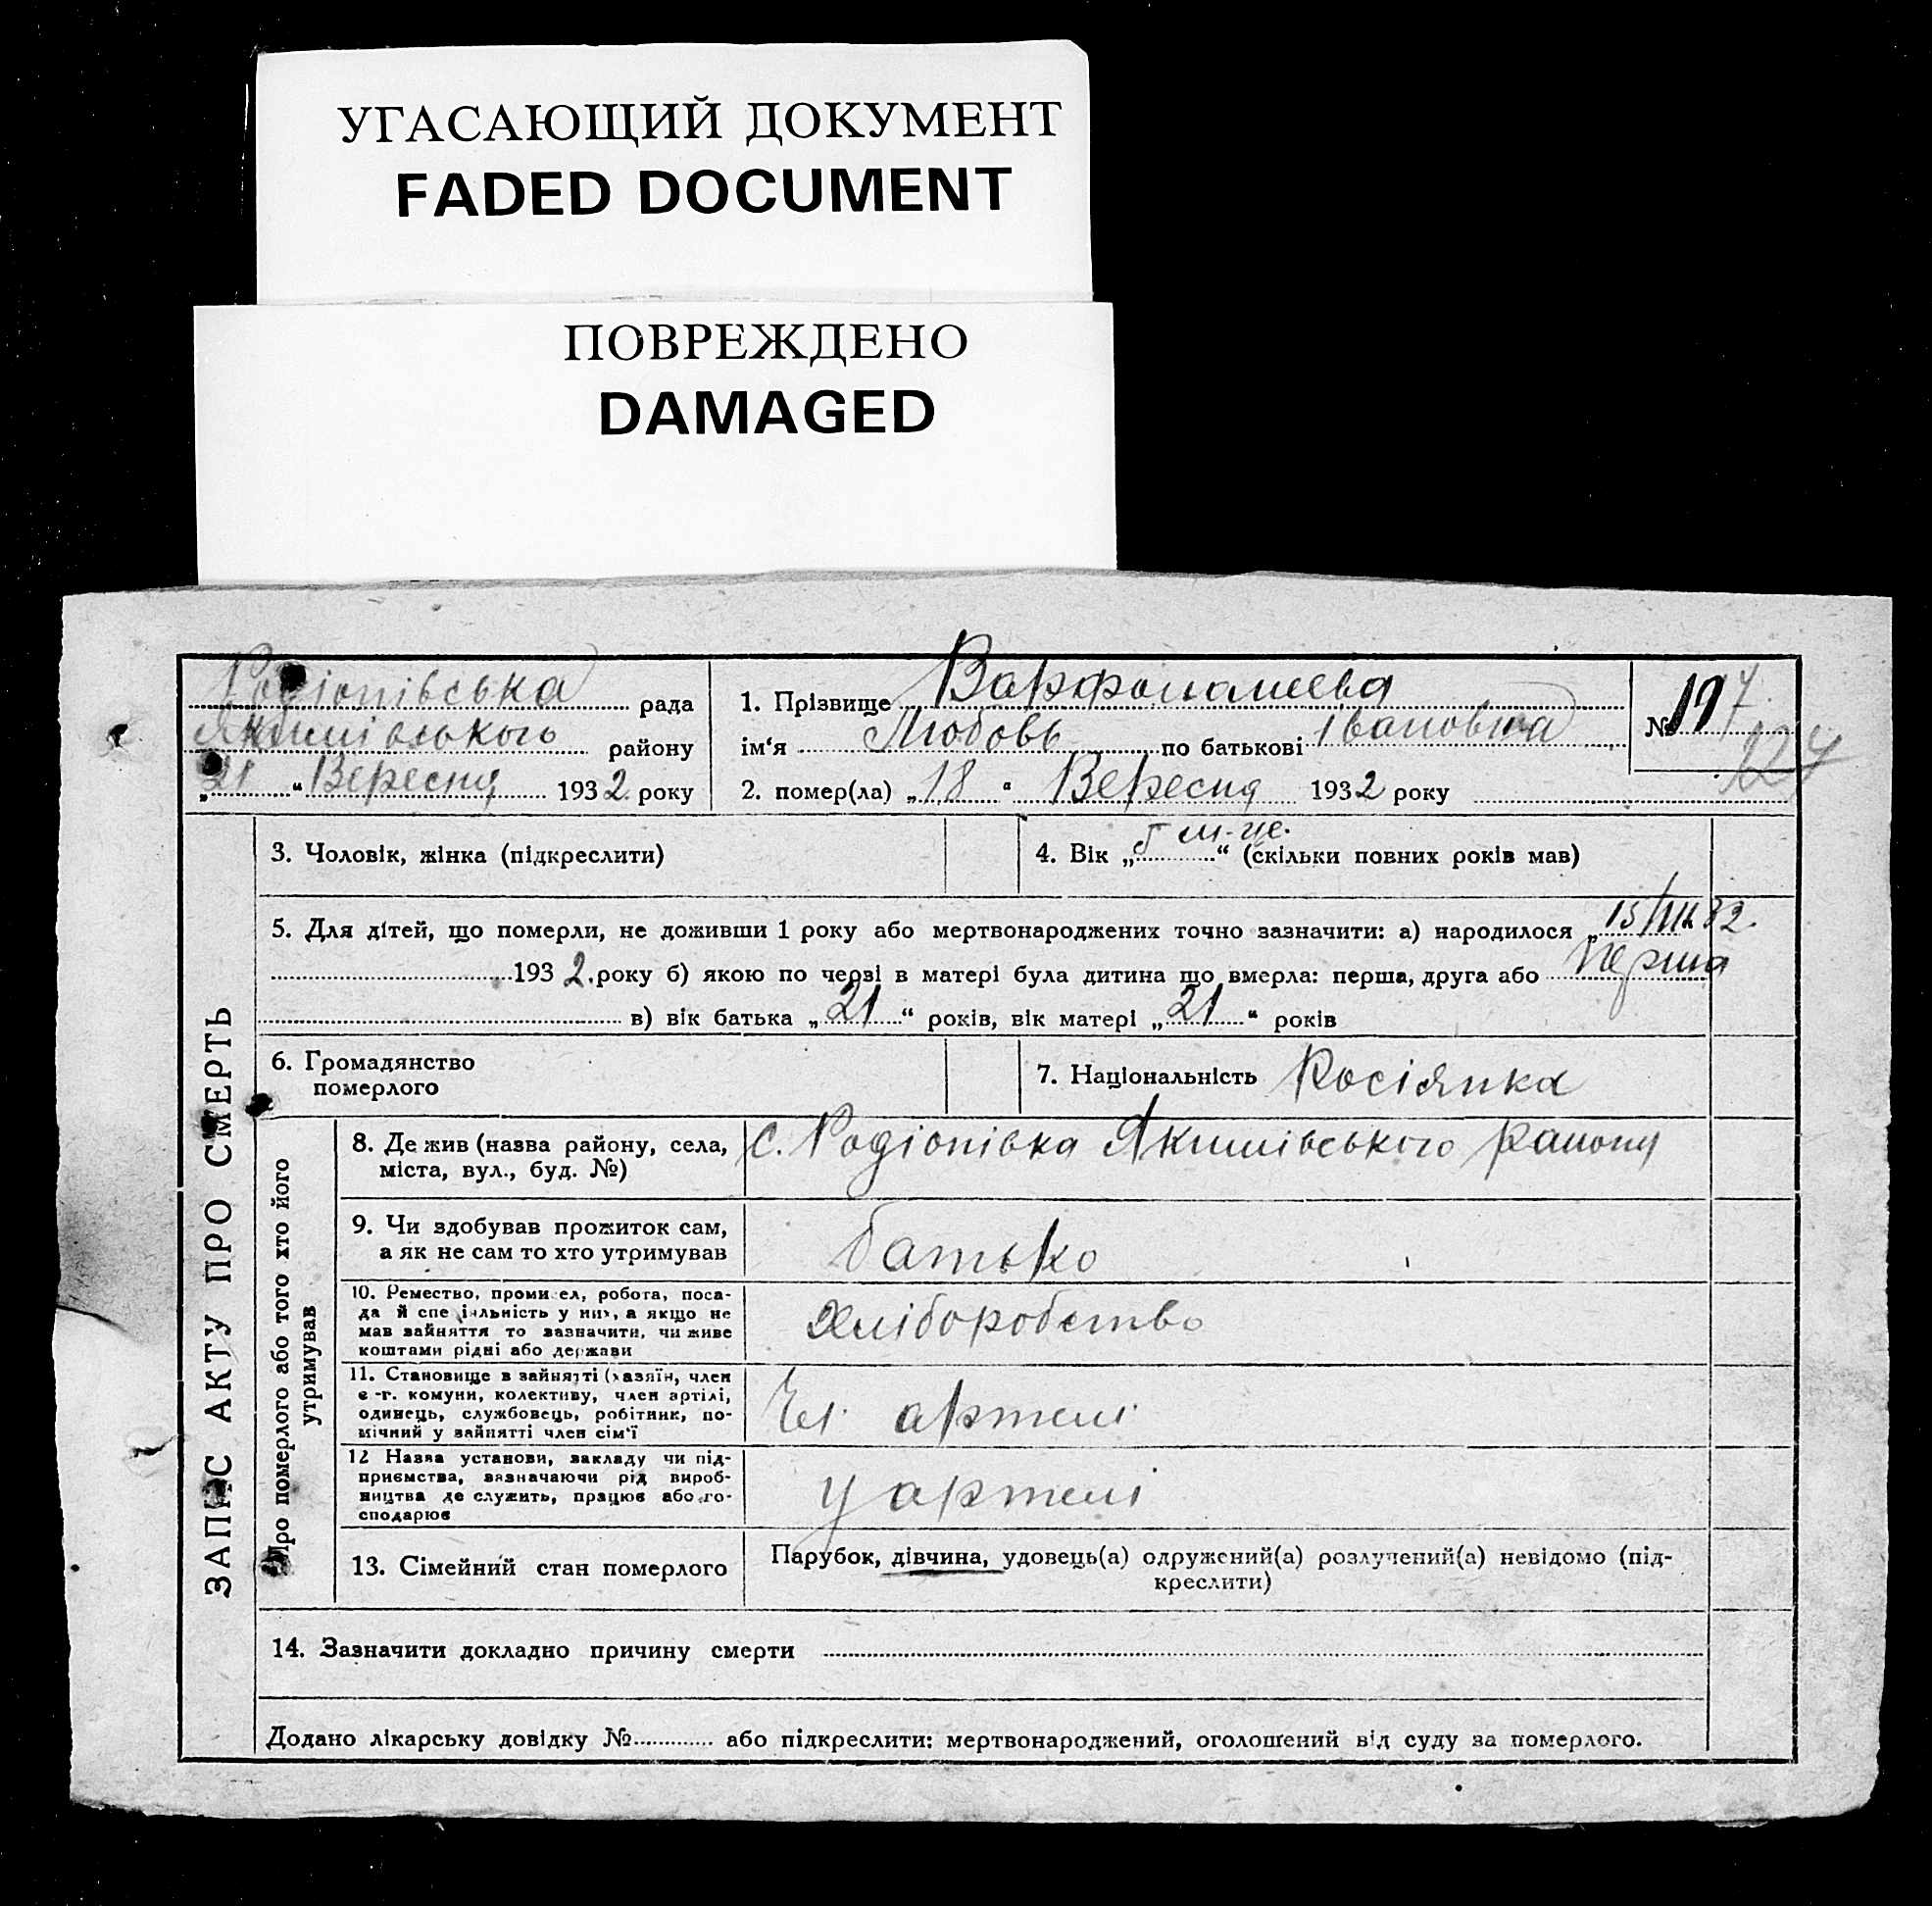 УГАСАЮЩИЙ ДОКУМЕНТ
FADED DOCUMENT
ПОВРЕЖДЕНО
DAMAGED
Родіонівська рада
Якимівського району
„21“ Вересня 1932 року
1. Прізвище Варфоламеева
ім‘я Любовь по батькові Івановна
2. помер(ла) „18“ Вересня 1932 року
№ 17
127
ЗАПИС АКТУ ПРО СМЕРТЬ
3. Чоловік, жінка (підкреслити)
4. Вік „ м-це.“ (скільки повних років мав)
5. Для дітей, що померли, не доживши 1 року або мертвонароджених точно зазначити: а) народилося „15/ 32.
1932. року б) якою по черзі в матері була дитина що вмерла: перша, друга або перша
в) вік батька „21“ років, вік матері „21“ років
6. Громадянство
померлого
7. Національність Росіянка
Про померлого або того хто його
утримував
8. Де жив (назва району, села,
міста, вул., буд. №)
с. Родіонівка Якимівського району
9. Чи здобував прожиток сам,
а як не сам то хто утримував
батько
10. Ремество, промисел, робота, поса-
да й спеціяльність у них, а якщо не
мав зайняття то зазначити, чи живе
коштами рідні або держави
Хліборобство
11. Становище в зайнятті (хазяїн, член
с.-г. комуни, колективу, член артілі,
одинець, службовець, робітник, по-
мічний у зайнятті член сім‘ї
Чл. артелі
12 Назва установи, закладу чи під-
приємства, зазначаючи рід вироб-
ництва де служить, працює або го-
сподарює
у артелі
13. Сімейний стан померлого
Парубок, дівчина, удовець(а) одружений(а) розлучений(а) невідомо (під-
креслити)
14. Зазначити докладно причину смерти
Додано лікарську довідку № або підкреслити: мертвонароджений, оголошений від суду за померлого.